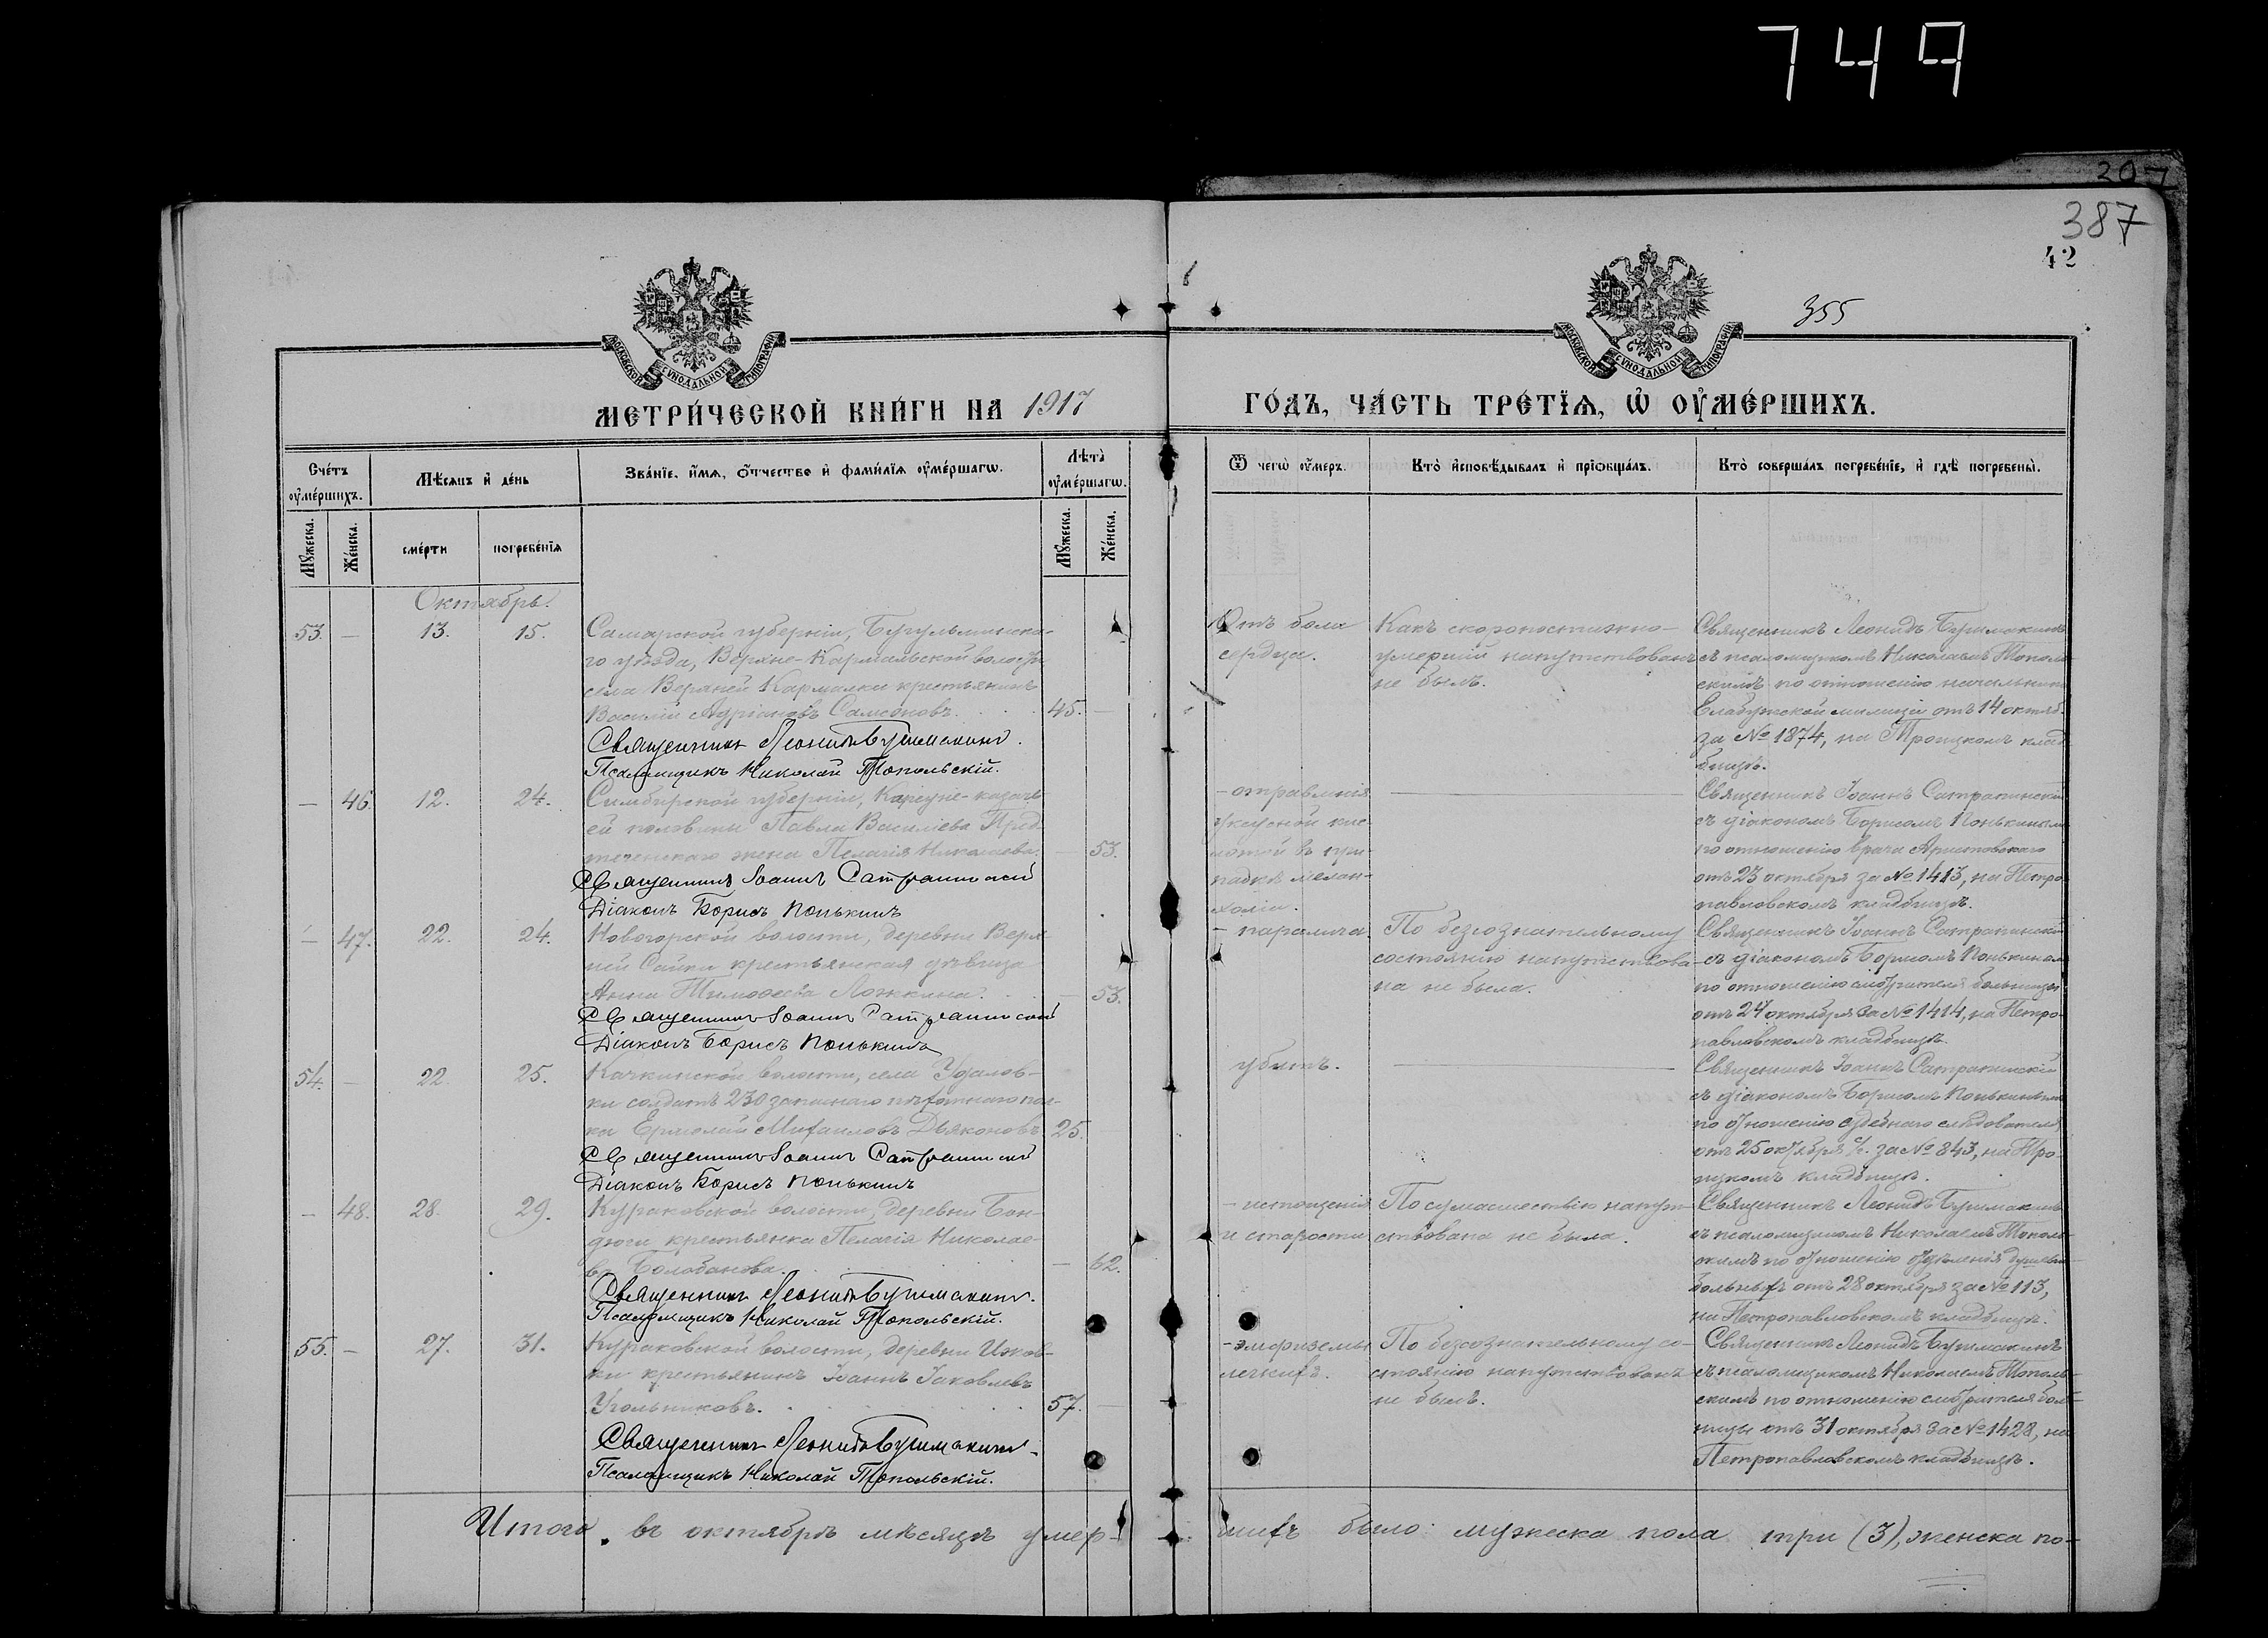 749
307
387
42
355
МОСКОВСКОЙ СѴНОДАЛЬНОЙ ТИПОГРАФІИ
МОСКОВСКОЙ СѴНОДАЛЬНОЙ ТИПОГРАФІИ
МЕТРИ́ЧЕСКОЙ КНИ́ГИ НА 1917
ГО́ДЪ, ЧА́СТЬ ТРЕ́ТЇѦ, Ѡ ОУ҆МЕ́РШИХЪ.
Сче́тъ оу҆ме́ршихъ.
Мѣсѧцъ и҆ де́нь
Зва́нїе, и҆́мѧ, ѻ҆́тчество и҆ фами́лїѧ оу҆ме́ршагѡ.
Лѣта̀ оу҆ме́ршагѡ.
Ѿ чегѡ̀ оу҆́меръ.
Кто̀ и҆сповѣ́дывалъ и҆ прїѡбща́лъ.
Кто̀ соверша́лъ погребе́нїе, и҆ гдѣ̀ погребены̀.
Мꙋ́жеска.
Же́нска.
сме́рти
погребе́нїѧ
Мꙋ́жеска.
Же́нска.
Октябрь.
53. — 13. 15.
Самарской губерніи, Бугульминска-
го уѣзда, Верхне-Кармальской волости,
села Верхней Кармалки крестьянинъ
Василій Адріановъ Самсоновъ. 45. —
Священникъ Леонидъ Бушмакинъ.
Псаломщикъ Николай Топольскій.
Отъ бола
сердца.
Какъ скоропостижно-
умершій напутствованъ
не былъ.
Священникъ Леонидъ Бушмакинъ
съ псаломщикомъ Николаемъ Тополь-
скимъ по отношенію начальника
Елабужской милиціи отъ 14 октяб.
за № 1874, на Троицкомъ клад-
бищѣ.
— 46. 12. 24.
Симбирской губерніи, Карсуне-казачь-
ей половины Павла Василіева
жена Пелагія Николаева. — 53.
Священникъ Іоаннъ Сатрапинскій
Діаконъ Борисъ Понькинъ
- отравленія
уксусной кис-
лотой въ при-
падкѣ мелан-
холіи.
Священникъ Іоаннъ Сатрапинскій
съ діакономъ Борисомъ Понькинымъ
по отношенію врача
отъ 23 октября за № 1413, на Петро-
павловскомъ кладбищѣ.
— 47. 22. 24.
Новогорской волости, деревни Верх-
ней Сайки крестьянская дѣвица
Анна Тимоѳеева Ложкина. — 53.
Священникъ Іоаннъ Сатрапинскій
Діаконъ Борисъ Понькинъ
- паралича.
По безсознательному
состоянію напутствова-
на не была.
Священникъ Іоаннъ Сатрапинскій
съ діакономъ Борисомъ Понькинымъ
по отношенію смотрителя больницы
отъ 24 октября за № 1414, на Петро-
павловскомъ кладбищѣ.
54. — 22. 25.
Качкинской волости, села Удалов-
ки солдатъ 230 запаснаго пѣхотнаго пол-
ка Ермолай Михаиловъ Дьяконовъ. 25.
Священникъ Іоаннъ Сатрапинскій
Діаконъ Борисъ Понькинъ
убитъ.
Священникъ Іоаннъ Сатрапинскій
съ діакономъ Борисомъ Понькинымъ
по отношенію судебнаго слѣдователя
отъ 25 октября с/г. за № 843, на Тро-
ицкомъ кладбищѣ.
— 48. 28. 29.
Кураковской волости, деревни Бон-
дюги крестьянка Пелагія Николае-
ва Болобанова. — 62.
Священникъ Леонидъ Бушмакинъ.
Псаломщикъ Николай Топольскій.
- истощенія
и старости
По сумасшествію напут-
ствована не была.
Священникъ Леонидъ Бушмакинъ
съ псаломщикомъ Николаемъ Тополь-
скимъ по отношенію отдѣленія душевно-
больныхъ отъ 28 октября за № 113,
на Петропавловскомъ кладбищѣ.
55. — 27. 31.
Кураковской волости, деревни Ижов-
ки крестьянинъ Іоаннъ Іаковлевъ
Угольниковъ. 57.
Священникъ Леонидъ Бушмакинъ.
Псаломщикъ Николай Топольскій.
- эмфиземы
легкихъ.
По безсознательному со-
стоянію напутствованъ
не былъ.
Священникъ Леонидъ Бушмакинъ
съ псаломщикомъ Николаемъ Тополь-
скимъ по отношенію смотрителя боль-
ницы отъ 31 октября за № 1428, на
Петропавловскомъ кладбищѣ.
Итого въ октябрѣ мѣсяцѣ умер-
шихъ было: мужеска пола три (3), женска по-